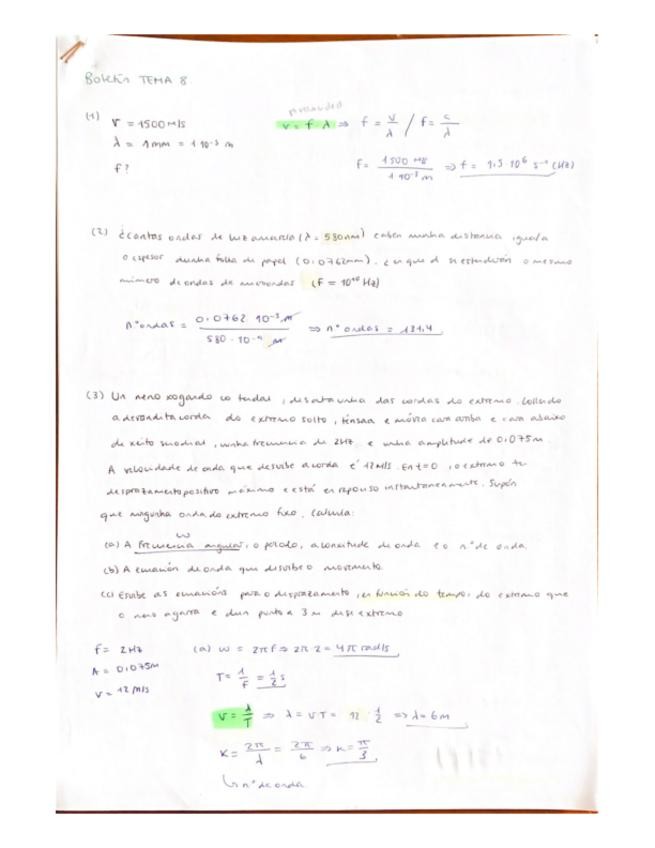 Boletín TEMA 8.
(1) V = 1500 m/s
λ = 1mm = 1·10⁻³ m
f?
v = f·λ ⇒ f = v/λ / f = c/λ
f = 1500 m/s / 1·10⁻³ m ⇒ f = 1,5·10⁶ s⁻¹ (Hz)
(2) ¿Cantas ondas de luz amarela (λ = 580nm) caben nunha distancia igual a
o espesor dunha folla de papel (0,0762mm). ¿en que d se estenderán o mesmo
número de ondas de microondas (f = 10¹⁰ Hz)
n° ondas = 0,0762·10⁻³ m / 580·10⁻⁹ m ⇒ n° ondas = 131,4
(3) Un neno xogando co tendal, desata unha das cordas do extremo. Collendo
a devandita corda do extremo solto, ténsaa e móvea cara arriba e cara abaixo
de xeito sinoidal, cunha frecuencia de 2Hz e unha amplitude de 0,075m.
A velocidade de onda que describe a corda é 12m/s. En t=0, o extremo ten
desprazamento positivo máximo e está en repouso instantaneamente. Supón
que ningunha onda do extremo fixo. Calcula:
w
(a) A frecuencia angular, o período, a lonxitude de onda e o n° de onda.
(b) A ecuación de onda que describe o movemento
(c) Escribe as ecuacións para o desprazamento, en función do tempo, do extremo que
o neno agarra e dun punto a 3m dese extremo
f = 2Hz
A = 0,075m
V = 12 m/s
(a) w = 2πf ⇒ 2π·2 = 4π rad/s
T = 1/f = 1/2 s
v = λ/T ⇒ λ = vT = 12·1/2 ⇒ λ = 6m
K = 2π/λ = 2π/6 ⇒ K = π/3
↳ n° de onda